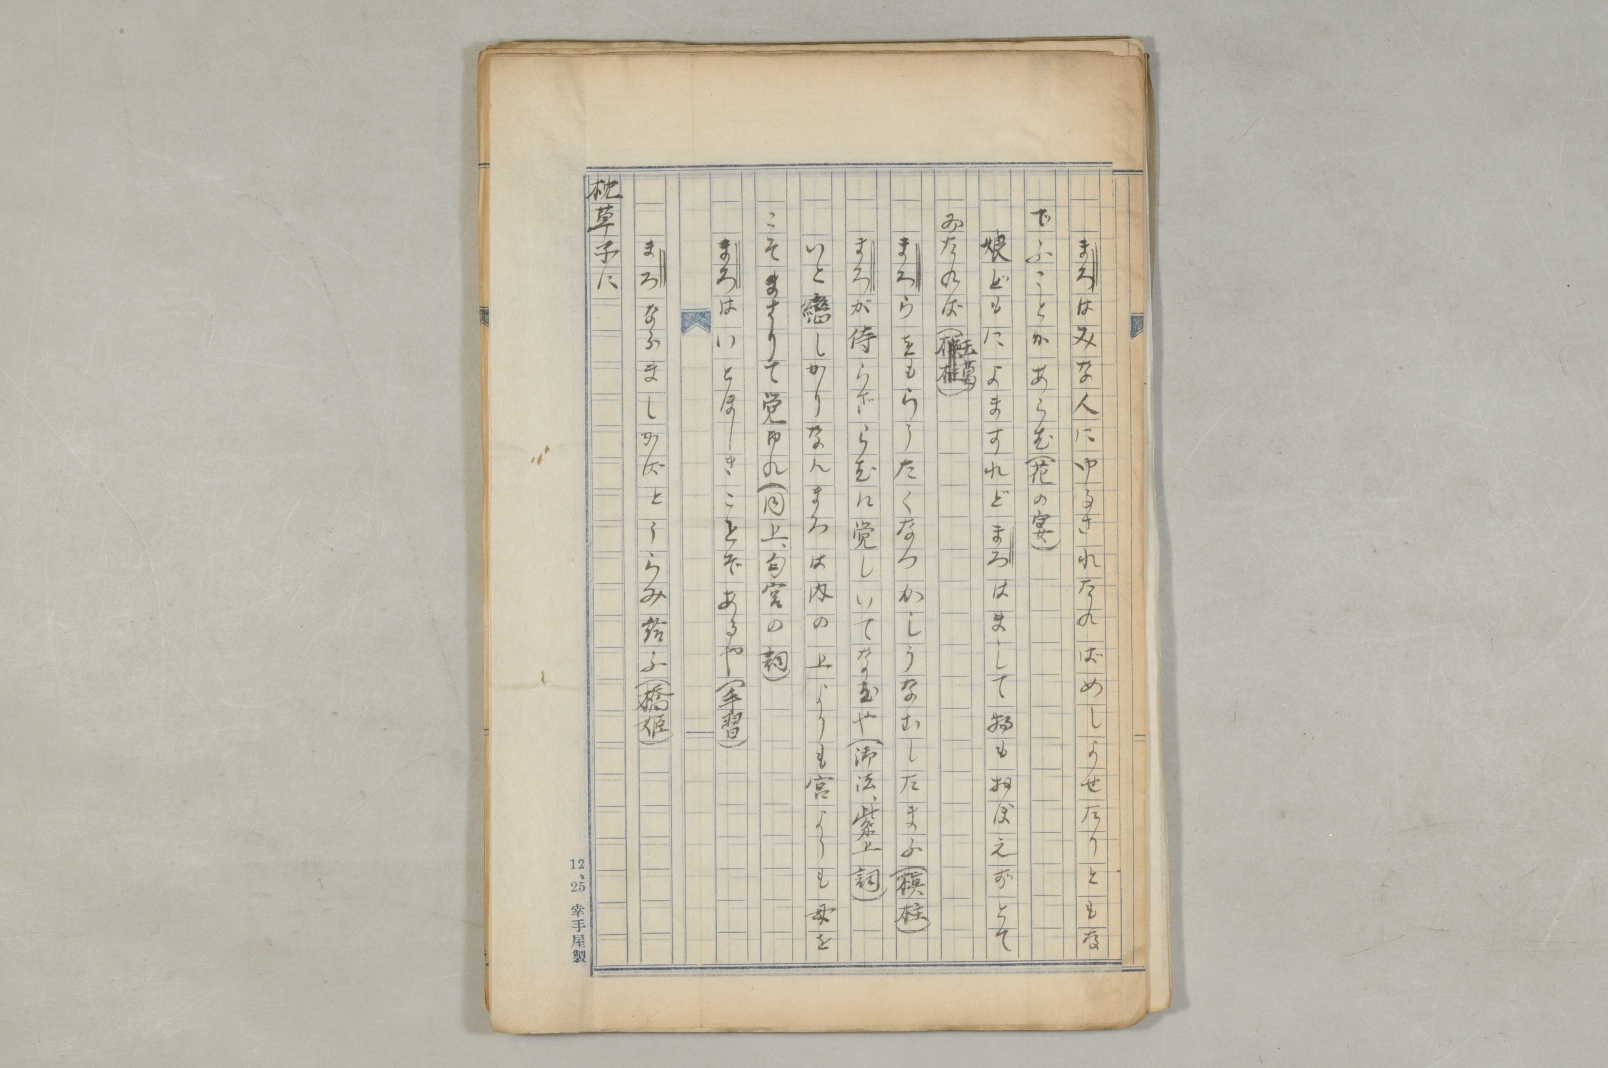 まろはみな人にゆるされたればめしよせたりともな
でふことかあらむ(花の宴)
娘どもによますれどまろはまして物もおぼえずとて
ゐたれば(玉葛)
まろらをもらうたくなつかしうなむしたまふ(槙柱)
まろが侍らざらむに覚しいでなむや(御法、紫上詞)
いと戀しかりなんまろは内の上よりも宮よりも母を
こそまさりて覚ゆれ(同上、匂宮の詞)
まろはいとほしきことぞあるや(手習)
まろならましかばとうらみ給ふ(橋姫)
枕草子に
12、25 幸手屋製